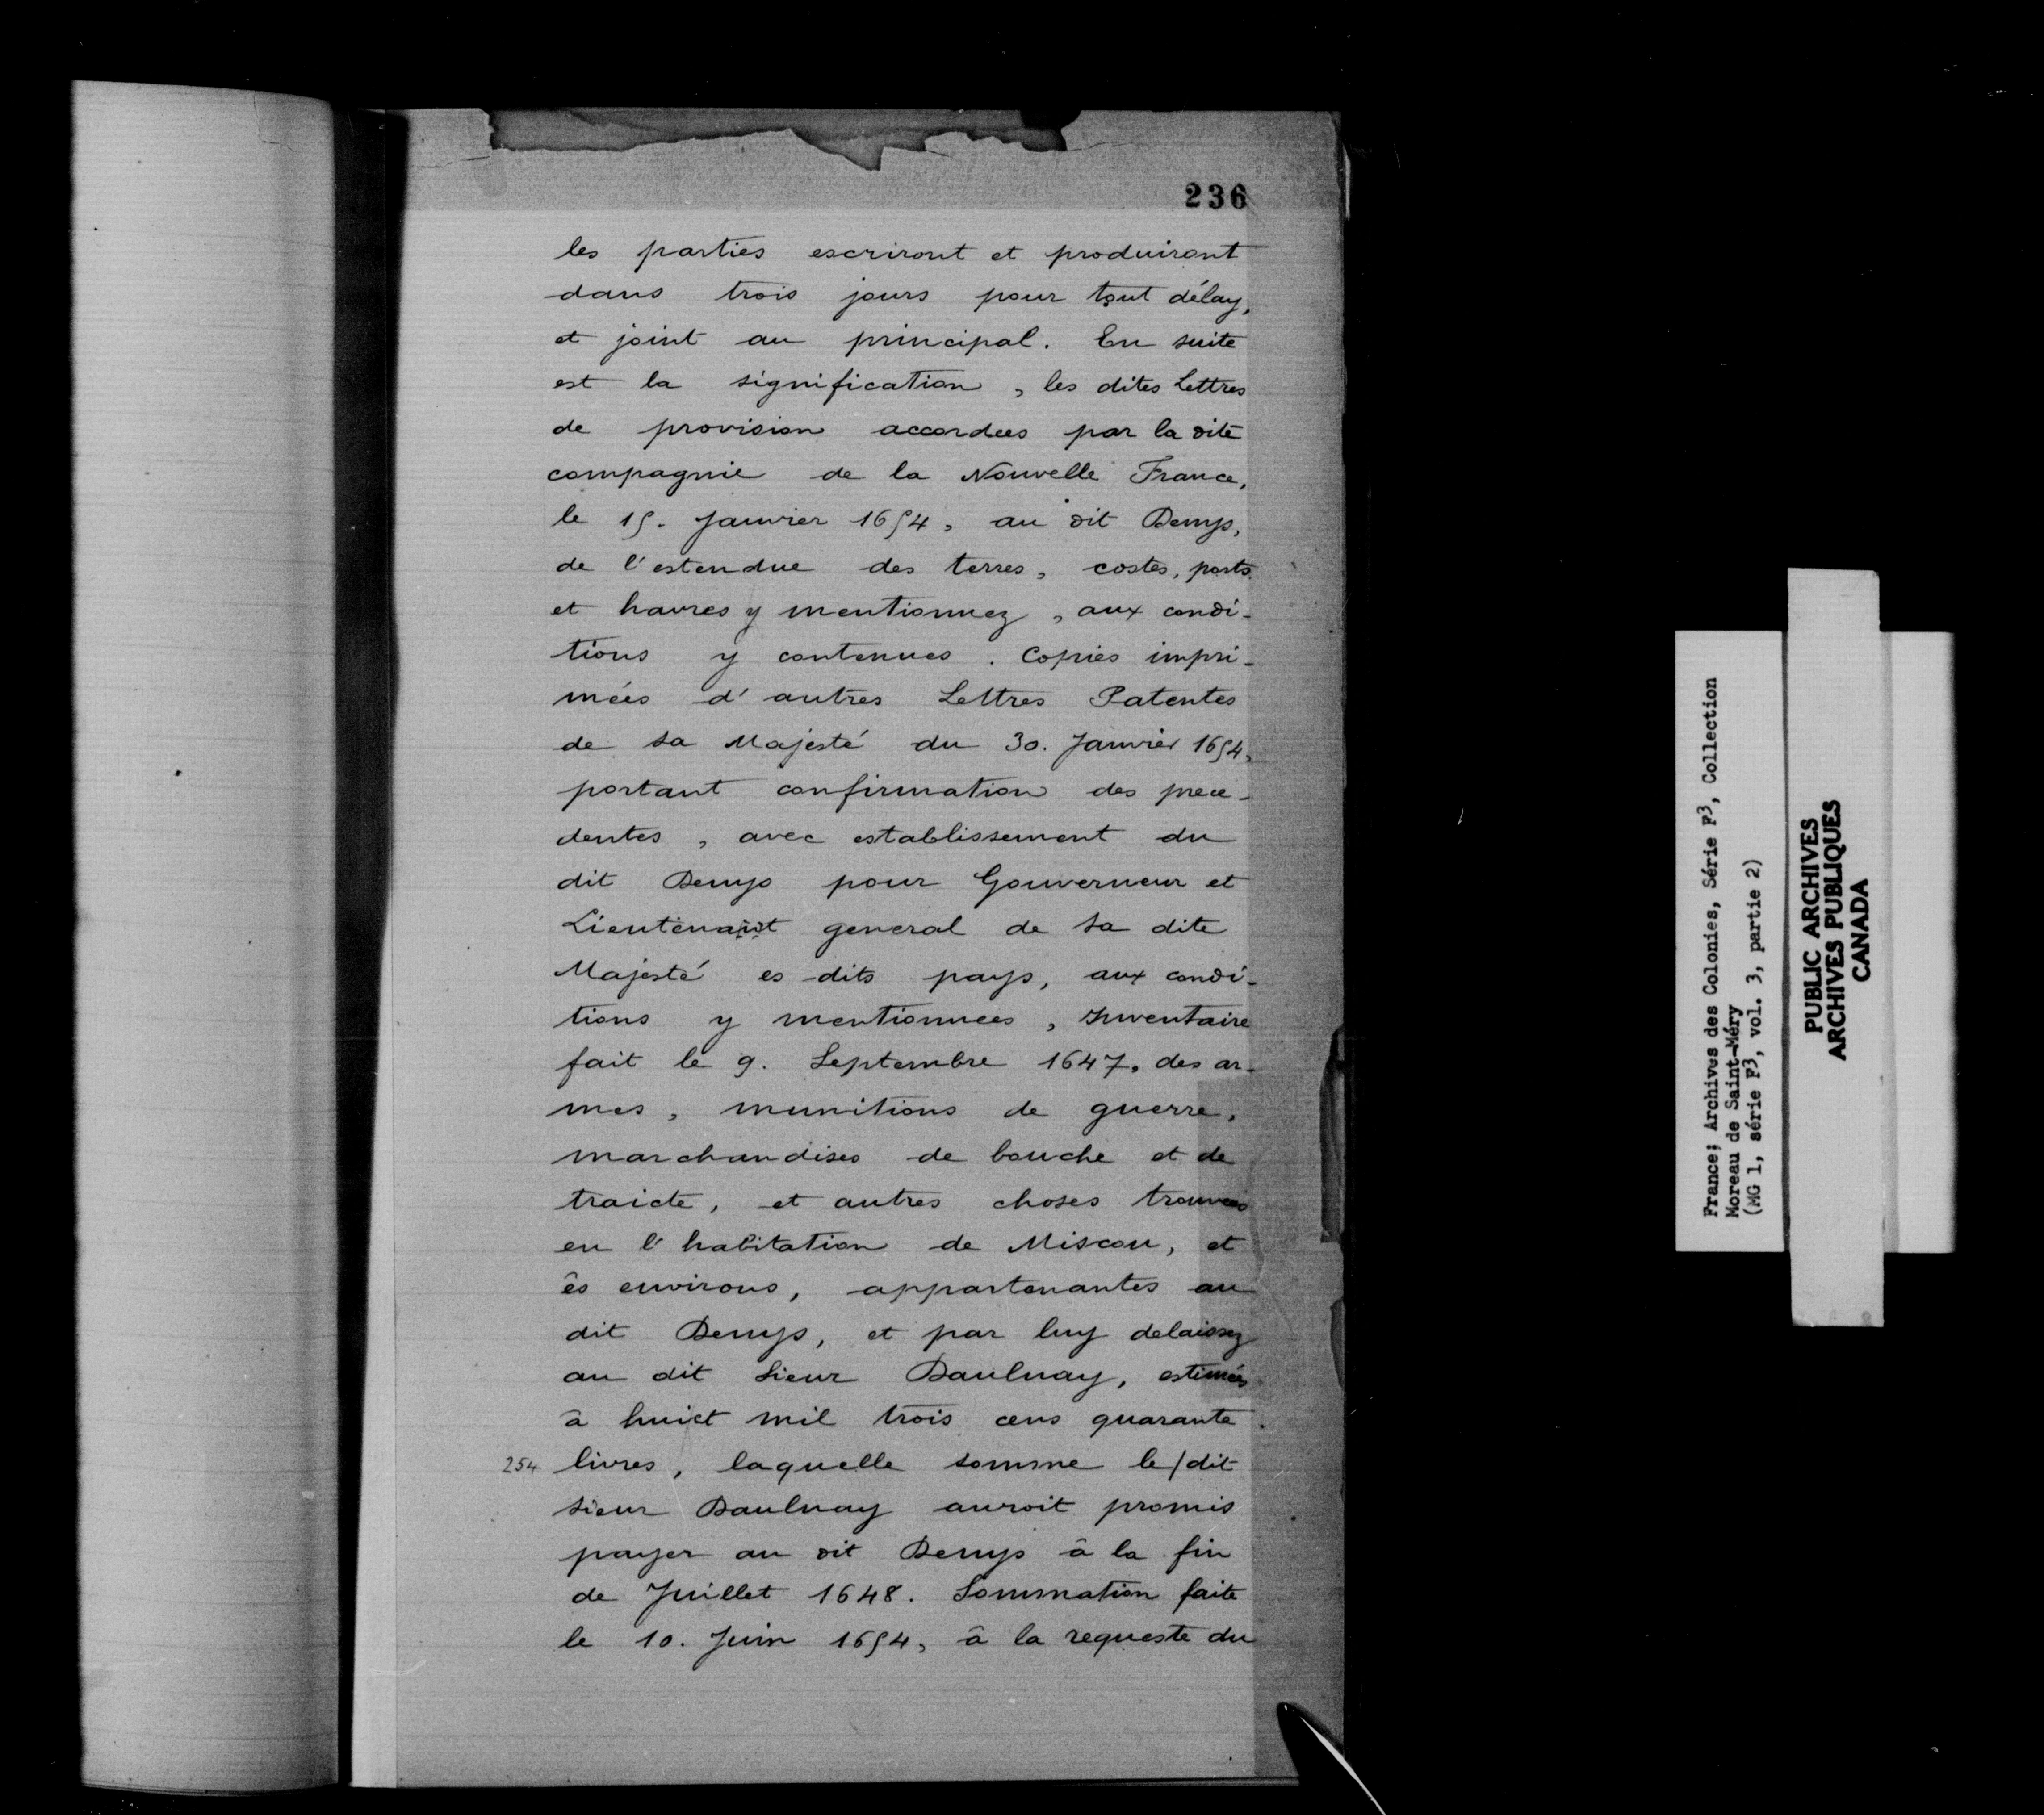 236
les parties escriront et produiront
dans trois jours pour tout délay,
et joint au principal. En suite
est la signification, les dites Lettres
de provision accordees par la dite
compagnie de la Nouvelle France,
le 15. Janvier 1654, au dit Denys,
de l'estendue des terres, costes, ports
et havres y mentionnez, aux condi-
tions y contenues. Copies impri-
mées d'autres Lettres Patentes
de sa Majesté du 30. Janvier 1654,
portant confirmation des prece-
dentes, avec establissement du
dit Denys pour Gouverneur et
Lieutenant general de sa dite
Majesté es dits pays, aux condi-
tions y mentionnees, Inventaire
fait le 9. Septembre 1647, des ar-
mes, munitions de guerre,
marchandises de bouche et de
traicte, et autres choses trouvees
en l'habitation de Miscou, et
ês environs, appartenantes au
dit Denys, et par luy delaissez
au dit Sieur Daulnay, estimés
à huict mil trois cens quarante
254 livres, laquelle somme le/dit
sieur Daulnay auroit promis
payer au dit Denys à la fin
de Juillet 1648. Sommation faite
le 10. Juin 1654, à la requeste du
France; Archives des Colonies, Série F3, Collection
Moreau de Saint-Méry
(MG 1, série F3, vol. 3, partie 2)
PUBLIC ARCHIVES
ARCHIVES PUBLIQUES
CANADA